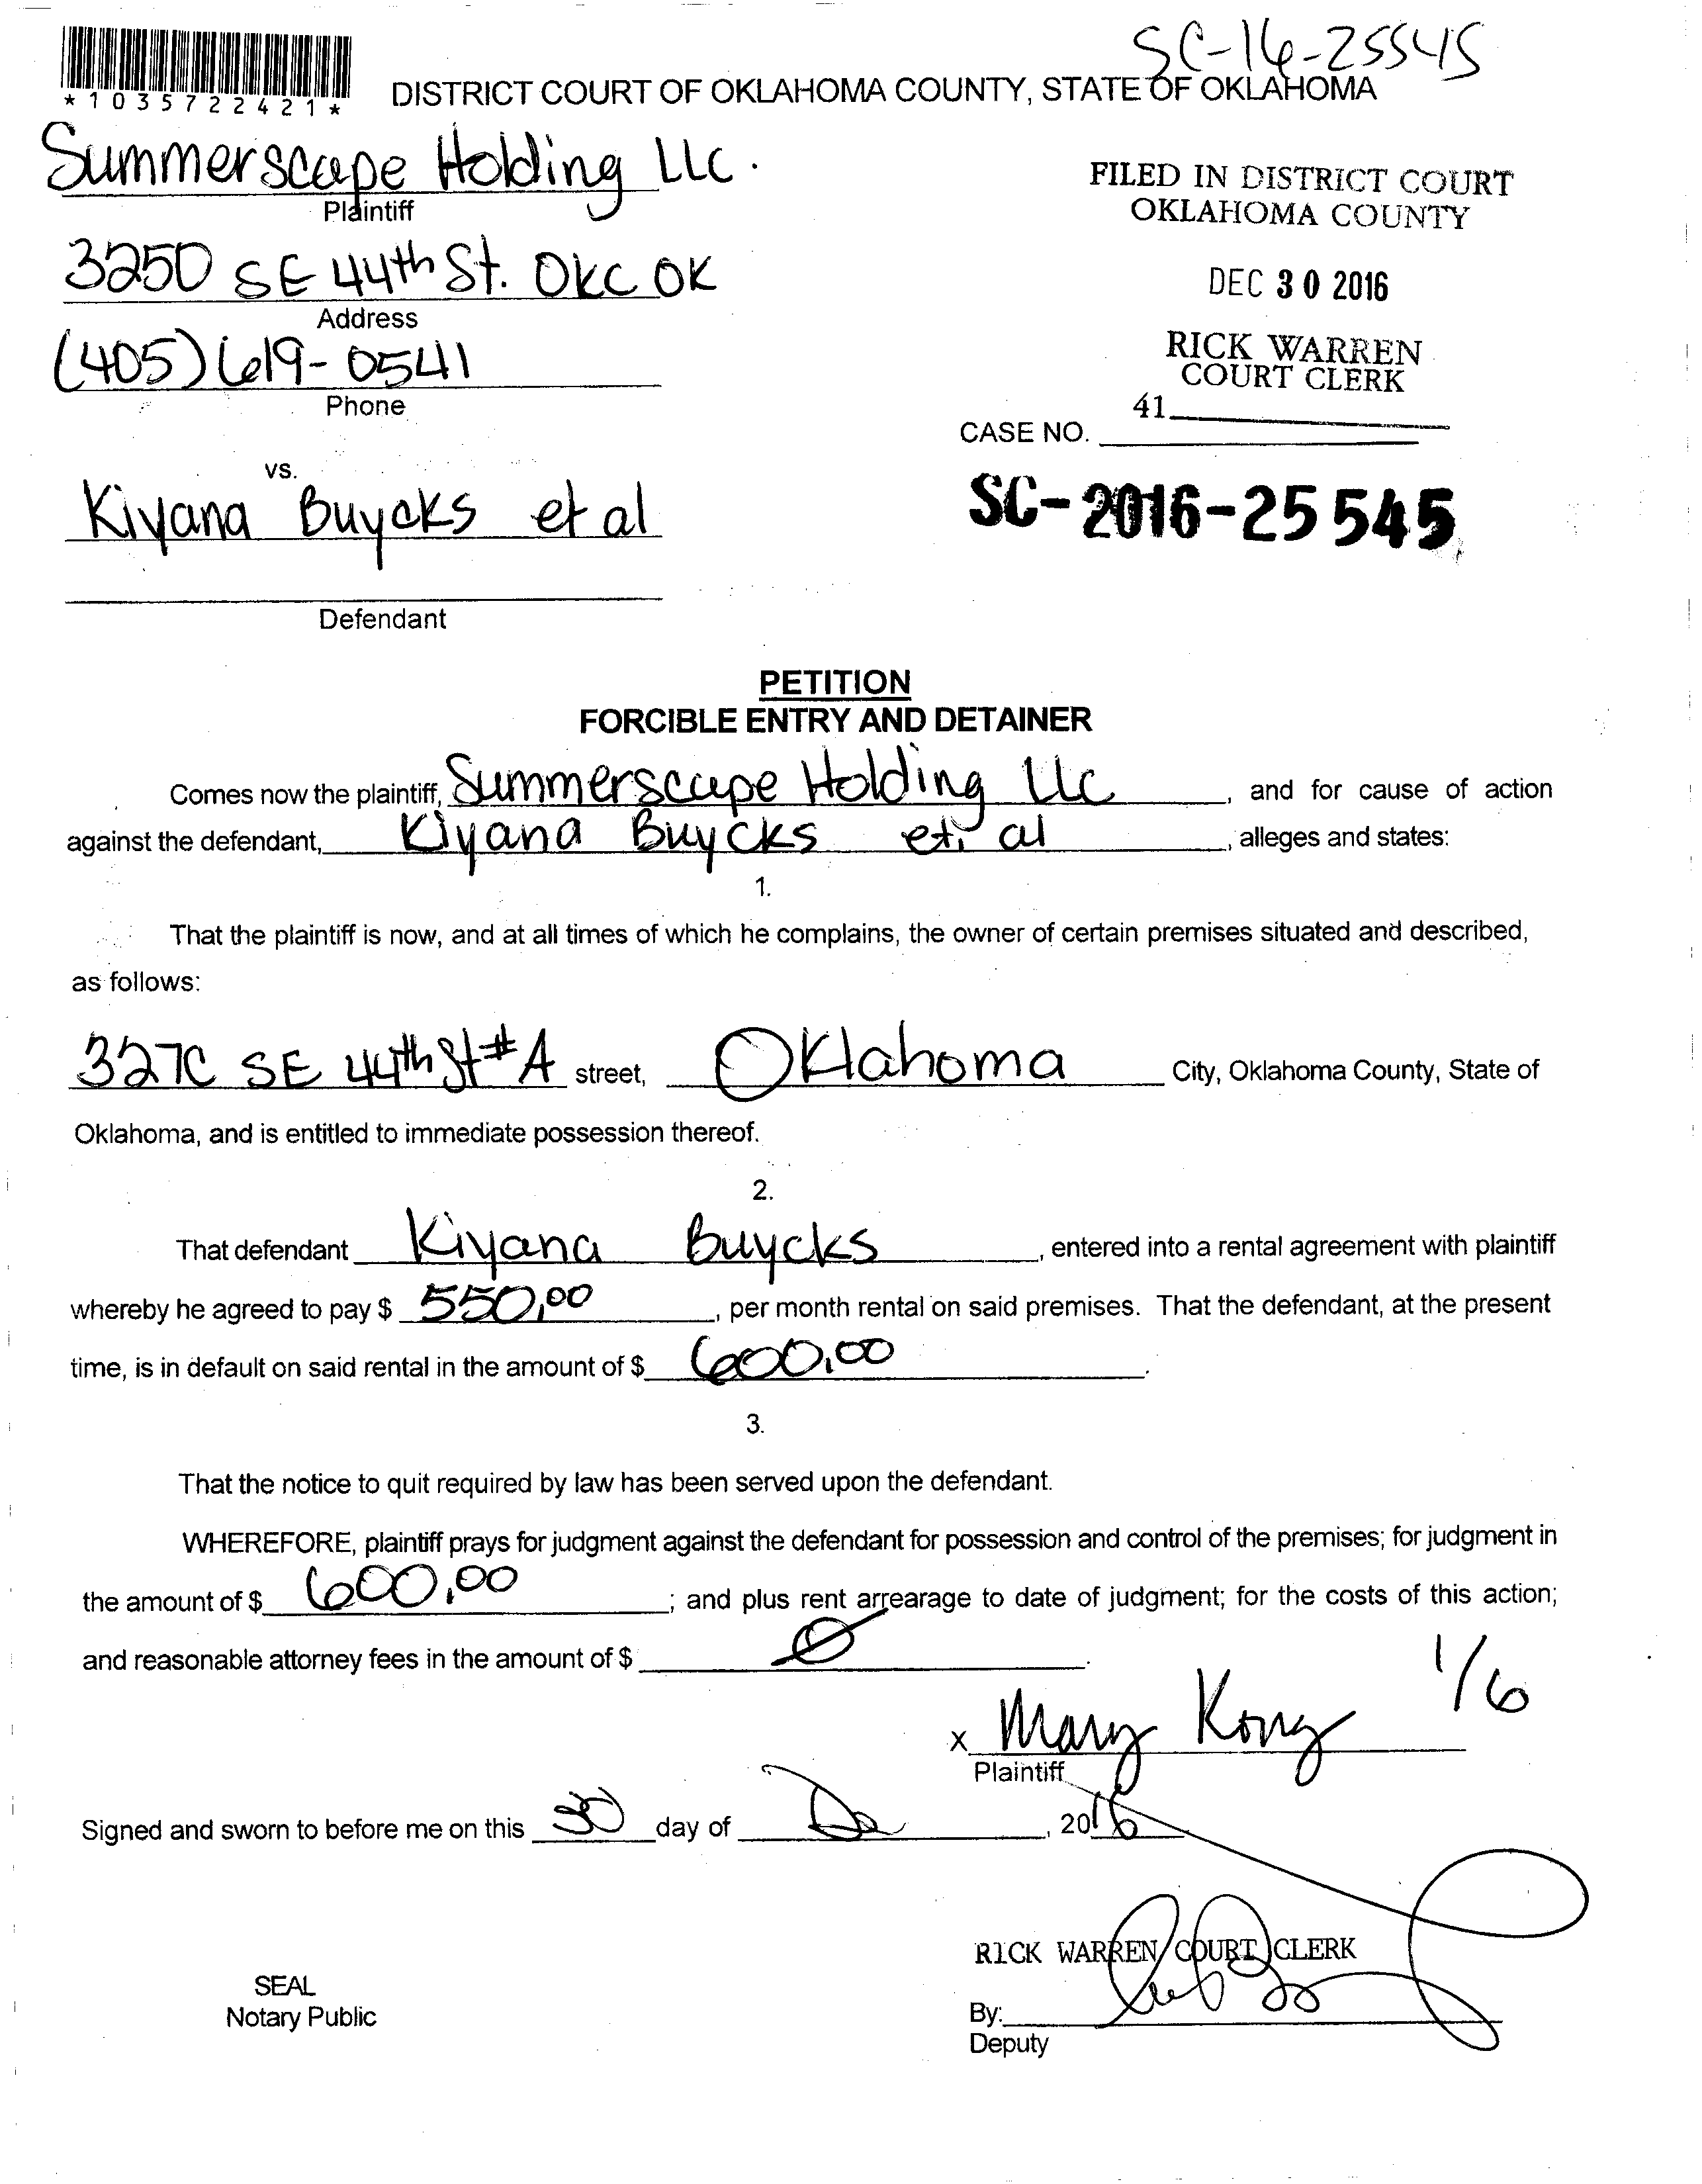 SC-16-25545
*1035722421*
DISTRICT COURT OF OKLAHOMA COUNTY, STATE OF OKLAHOMA
Summerscape Holding LLC.
Plaintiff
FILED IN DISTRICT COURT
OKLAHOMA COUNTY
3250 SE 44th St. OKC OK
Address
DEC 30 2016
(405) 619-0541
Phone
RICK WARREN
COURT CLERK
41
CASE NO.
vs.
Kiyana Buycks et al
SC-2016-25545
Defendant
PETITION
FORCIBLE ENTRY AND DETAINER
Comes now the plaintiff, Summerscape Holding LLc, and for cause of action
against the defendant, Kiyana Buycks et. al, alleges and states:
1.
That the plaintiff is now, and at all times of which he complains, the owner of certain premises situated and described,
as follows:
327C SE 44th St #A street, Oklahoma City, Oklahoma County, State of
Oklahoma, and is entitled to immediate possession thereof.
2.
That defendant Kiyana Buycks, entered into a rental agreement with plaintiff
whereby he agreed to pay $ 550.00, per month rental on said premises. That the defendant, at the present
time, is in default on said rental in the amount of $ 600.00.
3.
That the notice to quit required by law has been served upon the defendant.
WHEREFORE, plaintiff prays for judgment against the defendant for possession and control of the premises; for judgment in
the amount of $ 600.00; and plus rent arrearage to date of judgment; for the costs of this action;
and reasonable attorney fees in the amount of $ Ø.
1/6
x Mary Kong
Plaintiff
Signed and sworn to before me on this 30 day of De, 2016
RICK WARREN COURT CLERK
SEAL
Notary Public
By:
Deputy